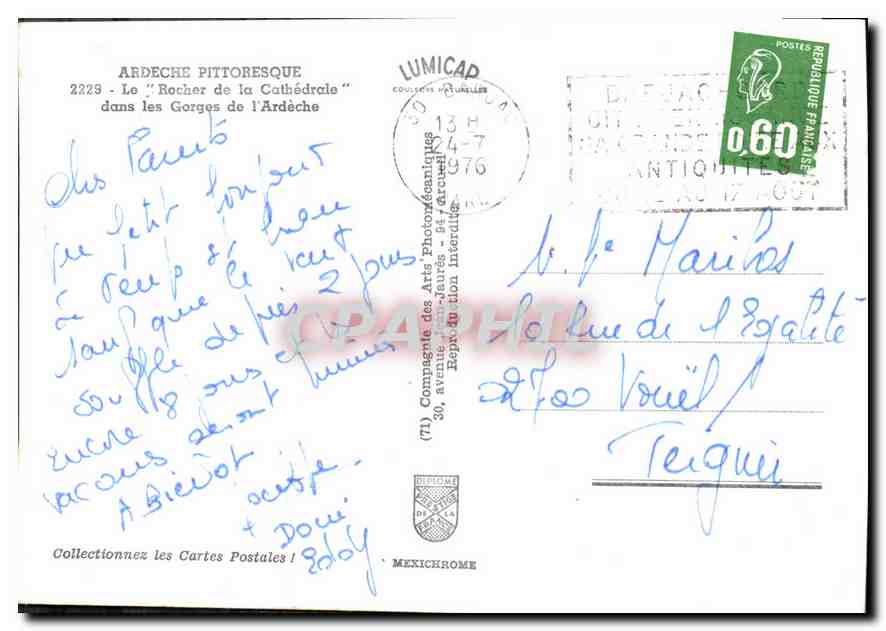 ARDECHE PITTORESQUE
2229 - Le "Rocher de la Cathédrale"
dans les Gorges de l'Ardèche
LUMICAP
COULEURS NATURELLES
13 H
24-7
1976
GARD
ANTIQUITES
AU 17 AOUT
POSTES
REPUBLIQUE FRANÇAISE
0,60
Chers Parents
un petit bonjour
le temps est beau
sauf que le vent
souffle depuis 2 jours
encore 8 jours et
vacances seront finies
A Bientôt
+ Domi
Eddy
(71) Compagnie des Arts Photomécaniques
30, avenue Jean-Jaurès - 94 - Arcueil
Reproduction interdite
CPAPHIL
Maribas
10 Rue de l'Egalité
02700 Vouël
Tergnier
DIPLOME
PRESTIGE
DE LA
FRANCE
Collectionnez les Cartes Postales !
MEXICHROME